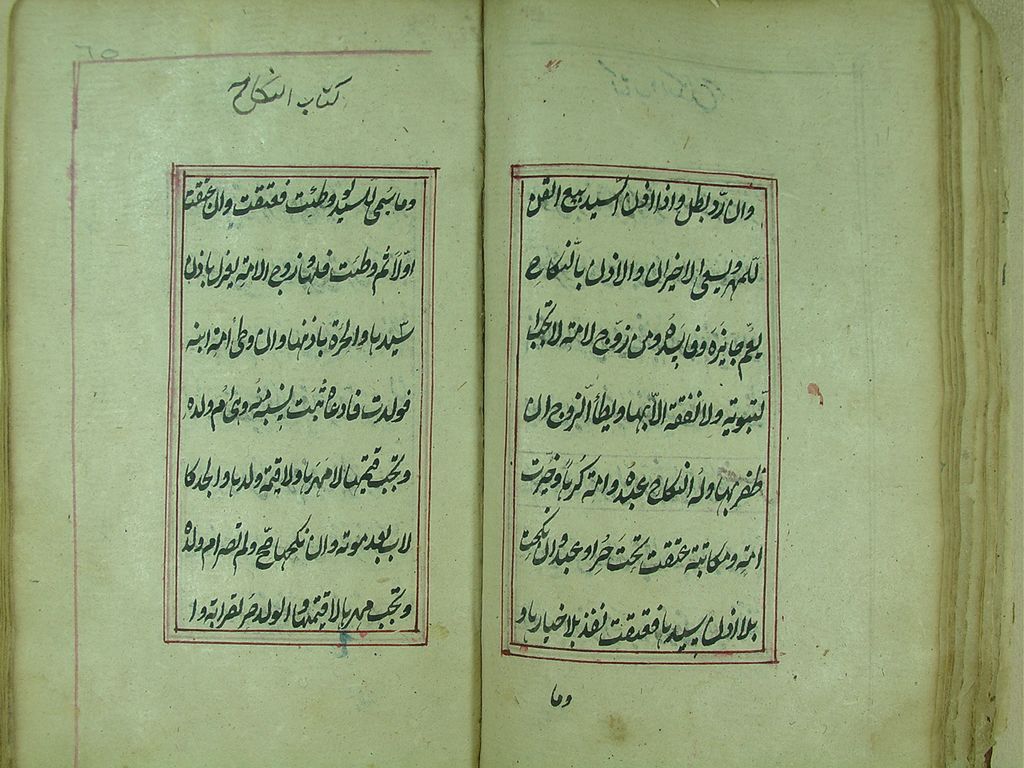 وان رد بطل واذا اذن السيد ببيع القن
للمهر ويسعى الاخران والاذن بالنكاح
يعم جائزه وفاسده ومن زوج لامته لا تجب
لتبويته ولا نفقة الا بها ويطأ الزوج ان
ظفر بها وله انكاح عبده وامته كرها وخيرت
امته ومكاتبته عتقت تحت حر او عبد وان نكحت
بلا اذن سيدها فعتقت نفذ بلا خيارها و
وما
٦٥
كتاب النكاح
وما سمى للسيد لو وطئت فعتقت وان عتقت
اولا ثم وطئت فلها وزوج الامة يعزل باذن
سيدها والحرة باذنها وان وطئ امة ابنه
فولدت فادعاه ثبت نسبه منه وهى ام ولده
وتجب قيمتها لا مهرها ولا قيمة ولدها والجد كا
لاب بعد موته وان نكحها صح ولم تصر ام ولده
وتجب مهرها لا قيمتها والولد حر لقرابته وا